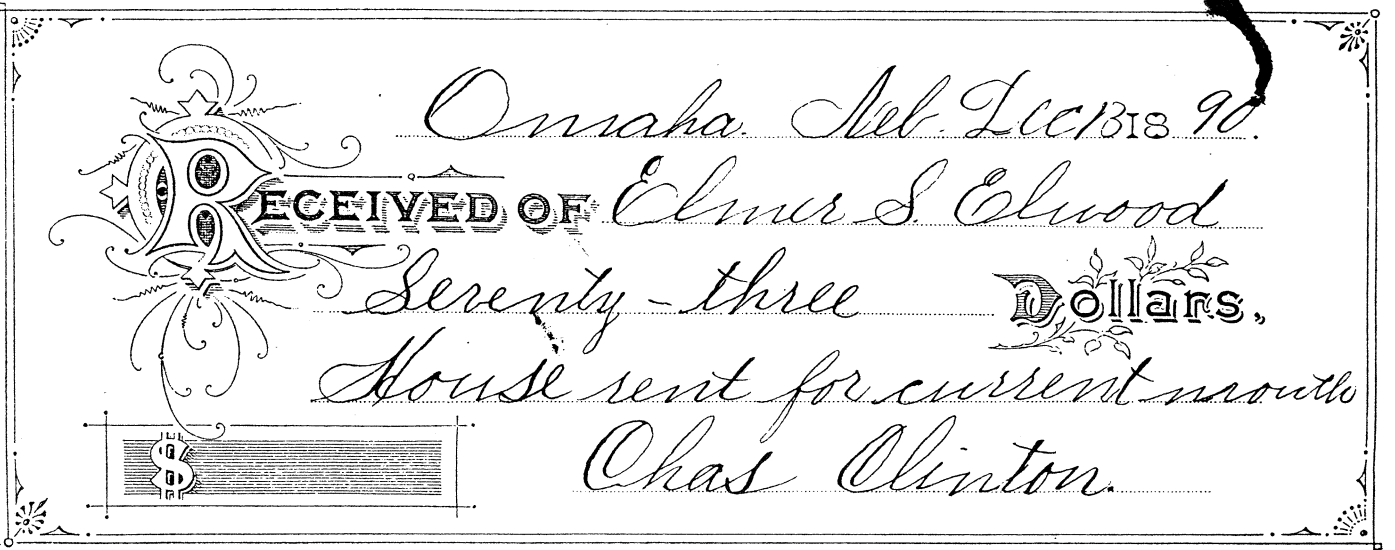 Omaha. Neb. Dec 13 18 90.
RECEIVED OF Elmer S. Elwood
Seventy-three Dollars,
House rent for current month
$ Chas Clinton.